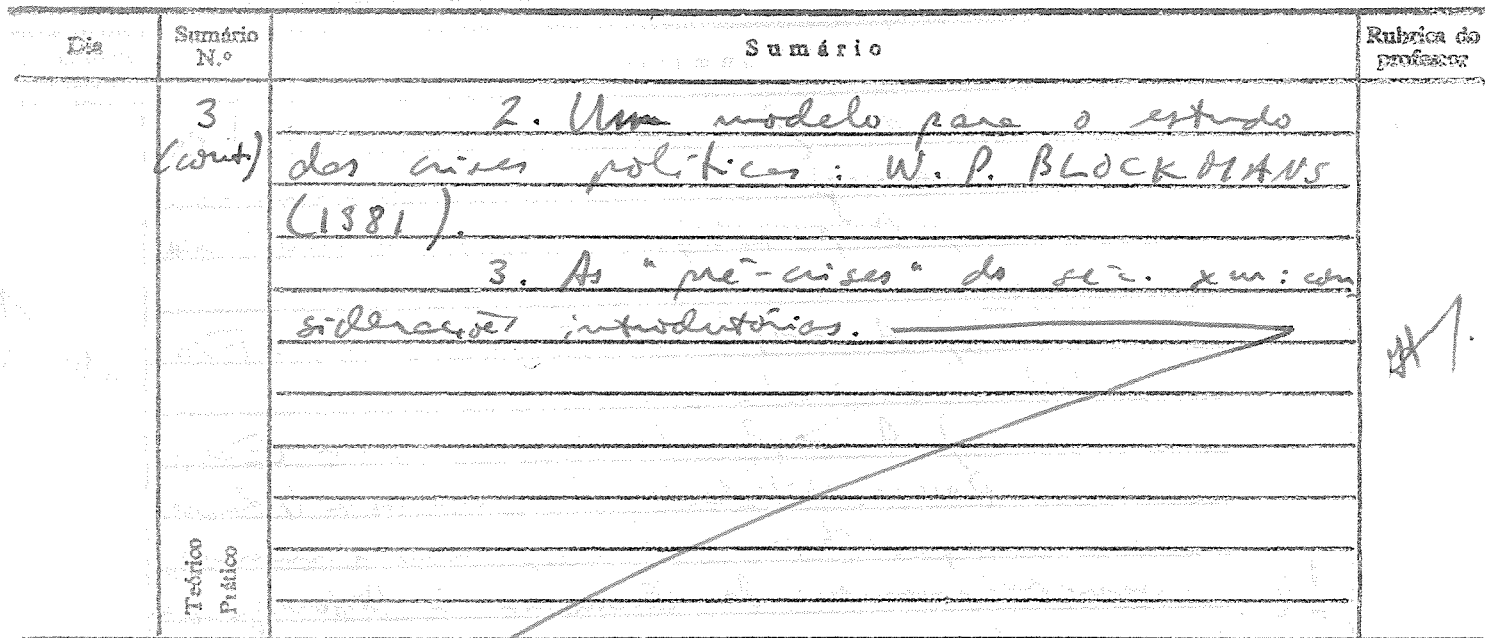 Dia
Sumário N.º
Sumário
Rubrica do professor
3 (cont.)
2. Um modelo para o estudo
das crises políticas: W. P. BLOCKMANS
(1981).
3. As "pré-crises" do séc. XIII: con
siderações introdutórias.
Teórico
Prático